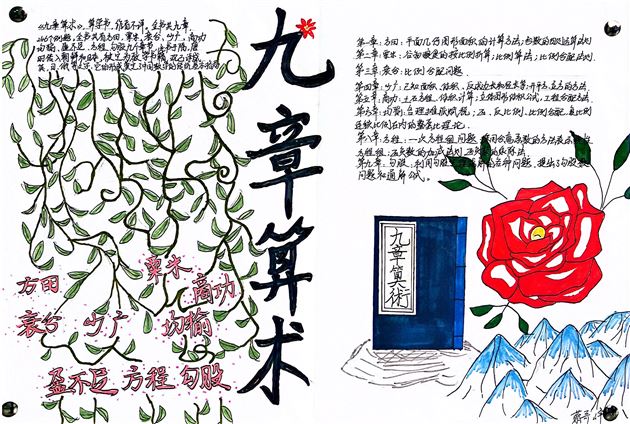 《九章算术》，算学书，作者不详，全书共九章，
246个例题，全书共有方田、粟米、衰分、少广、商功
均输、盈不足、方程、勾股九个章节
九章算术
方田
粟米
商功
衰分
少广
均输
盈不足
方程
勾股
第一章：方田：平面几何图形面积的计算方法；分数的四则运算法则
第二章：粟米：谷物粮食的按比例折算；比例算法；比例分配法则
第三章：衰分：比例分配问题
第四章：少广：已知面积、体积，反求边长和径长等；开平方、立方的方法
第五章：商功：土石工程、体积计算；立体图形体积公式，工程分配方法
第六章：均输：合理摊派赋税；正、反比例、比例分配、复比例
连锁比例在内的整套比例理论。
第八章：方程：一次方程组问题
方程组；正负数的加减法则
第九章：勾股：利用勾股定理求解的各种问题，提出了勾股数
问题和通解公式。
九章算術